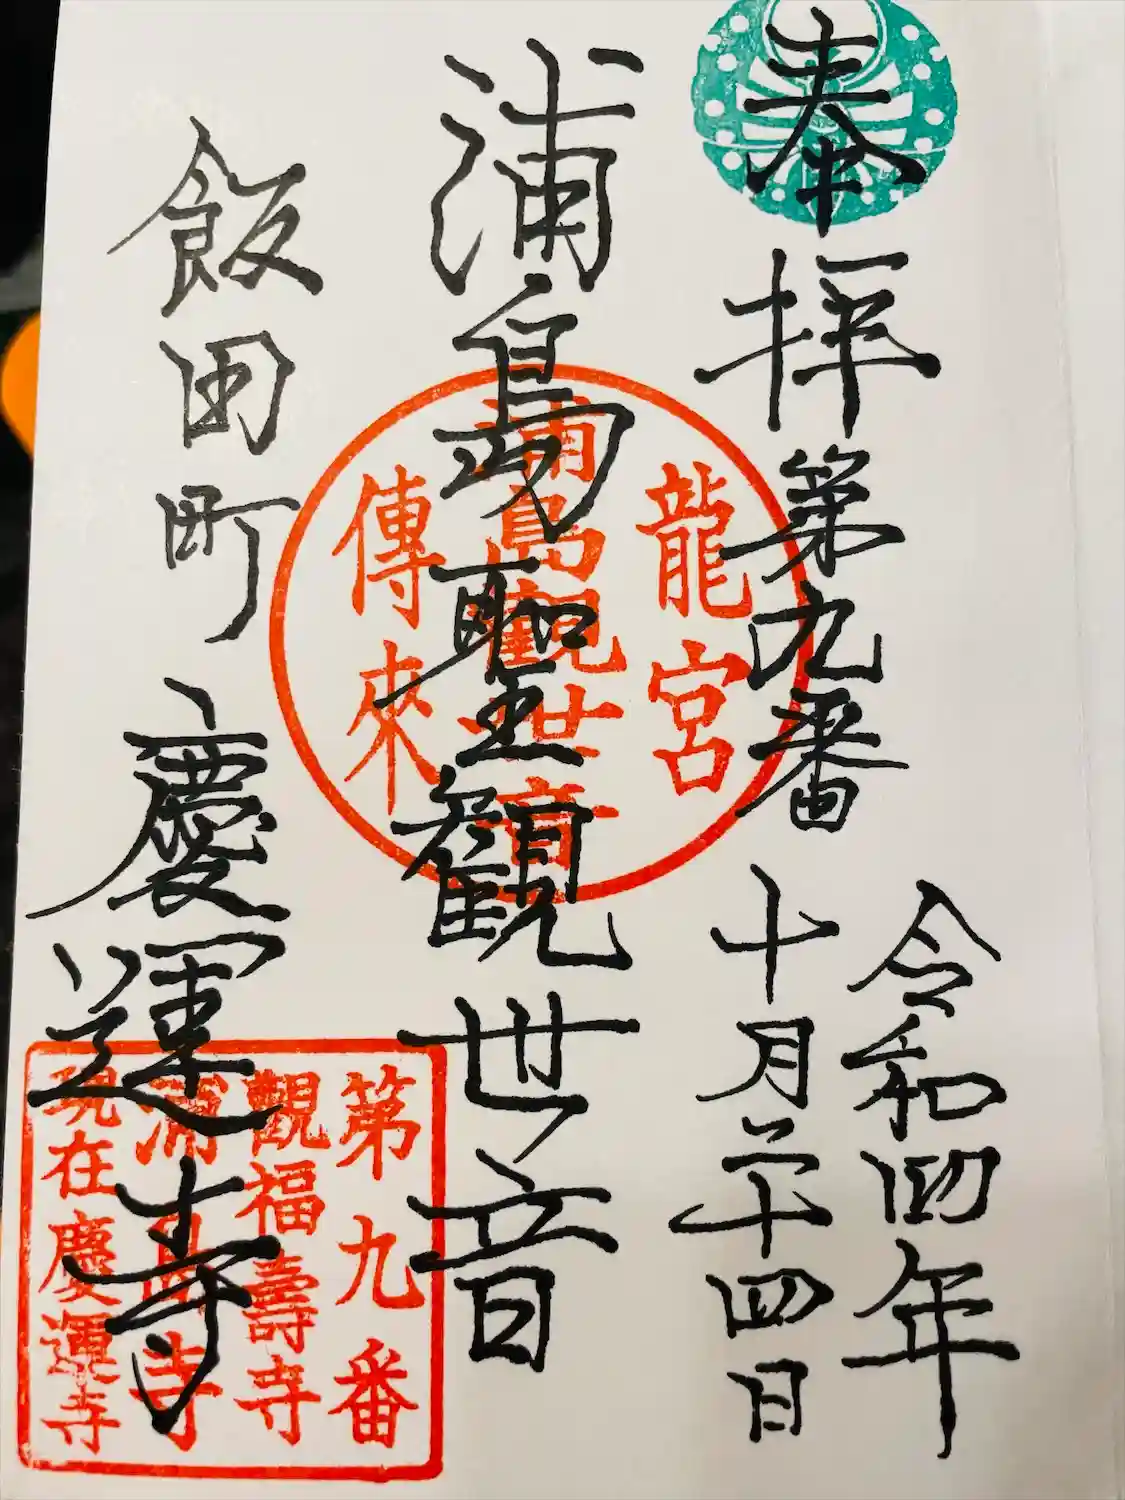 奉拝 第九番
令和四年
十月二十四日
浦島聖観世音
飯田町 慶運寺
龍宮
浦島觀世音
傳來
第九番
觀福壽寺
浦島寺
現在慶運寺